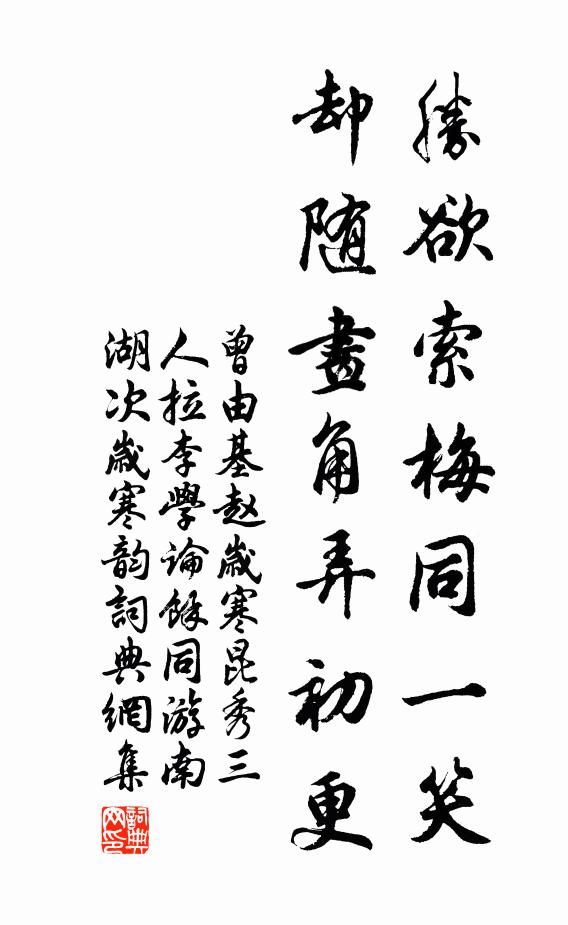 勝欲索梅同一笑
却随畫角弄初更
曾由基赵歲寒昆秀三
人拉李學論餘同游南
湖次歲寒韵詞典網集
詞典网印